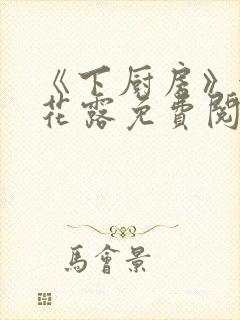 《下厨房》
花露免費閱
馬會景